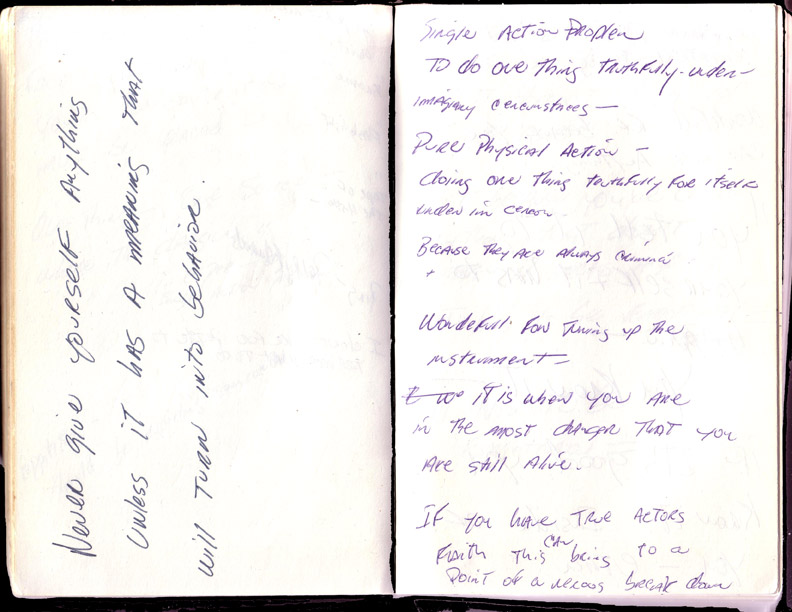 Never give yourself Anything
unless it has a meaning that
will turn into behavior.
Single Action Problem
To do one thing truthfully under
imaginary circumstances —
Pure Physical Action —
doing one thing truthfully for itself
under
Because they are always
+
Wonderfull for Tuning up the
instrument —
it is when you are
in the most danger that you
are still Alive.
If you have True Actors
Faith this can bring to a
Point of a nervous break down